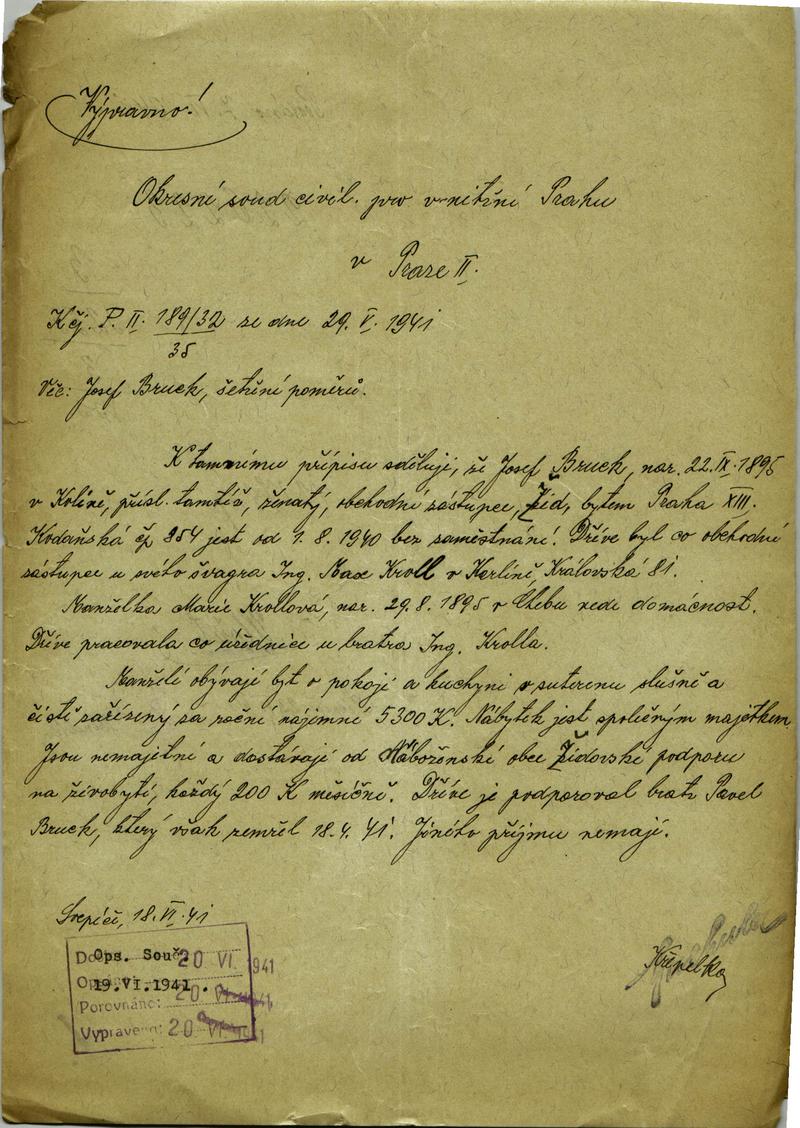 Výpravno!
Okresní soud civil. pro vnitřní Prahu
v Praze II.
K čj. P. II. 189/32 ze dne 29. V. 1941
35
Věc: Josef Bruck, šetření poměrů.
K tamnímu přípisu sděluji, že Josef Bruck, nar. 22.IX.1895
v Kolíně, přísl. tamtéž, ženatý, obchodní zástupce, Žid, bytem Praha XIII.
Kodaňská čp 854 jest od 1. 8. 1940 bez zaměstnání. Dříve byl co obchodní
zástupce u svého švagra Ing. Max Kroll v Karlíně, Královská 81.
Manželka Marie Krollová, nar. 29.8.1895 v Chebu vede domácnost.
Dříve pracovala co úřednice u bratra Ing. Krolla.
Manželé obývají byt o pokoji a kuchyni v suterenu slušně a
čistě zařízený za roční nájemné 5300 K. Nábytek jest společným majetkem.
Jsou nemajetní a dostávají od Náboženské obce Židovské podporu
na živobytí, každý 200 K měsíčně. Dříve je podporoval bratr Pavel
Bruck, který však zemřel 18.4.41. Jiného příjmu nemají.
18.VI.41
Křepelka
Ops. Souč. 20 VI. 1941
19.VI.1941.
Porovnáno: 20 VI. 1941
Vypraveno: 20 VI. 1941